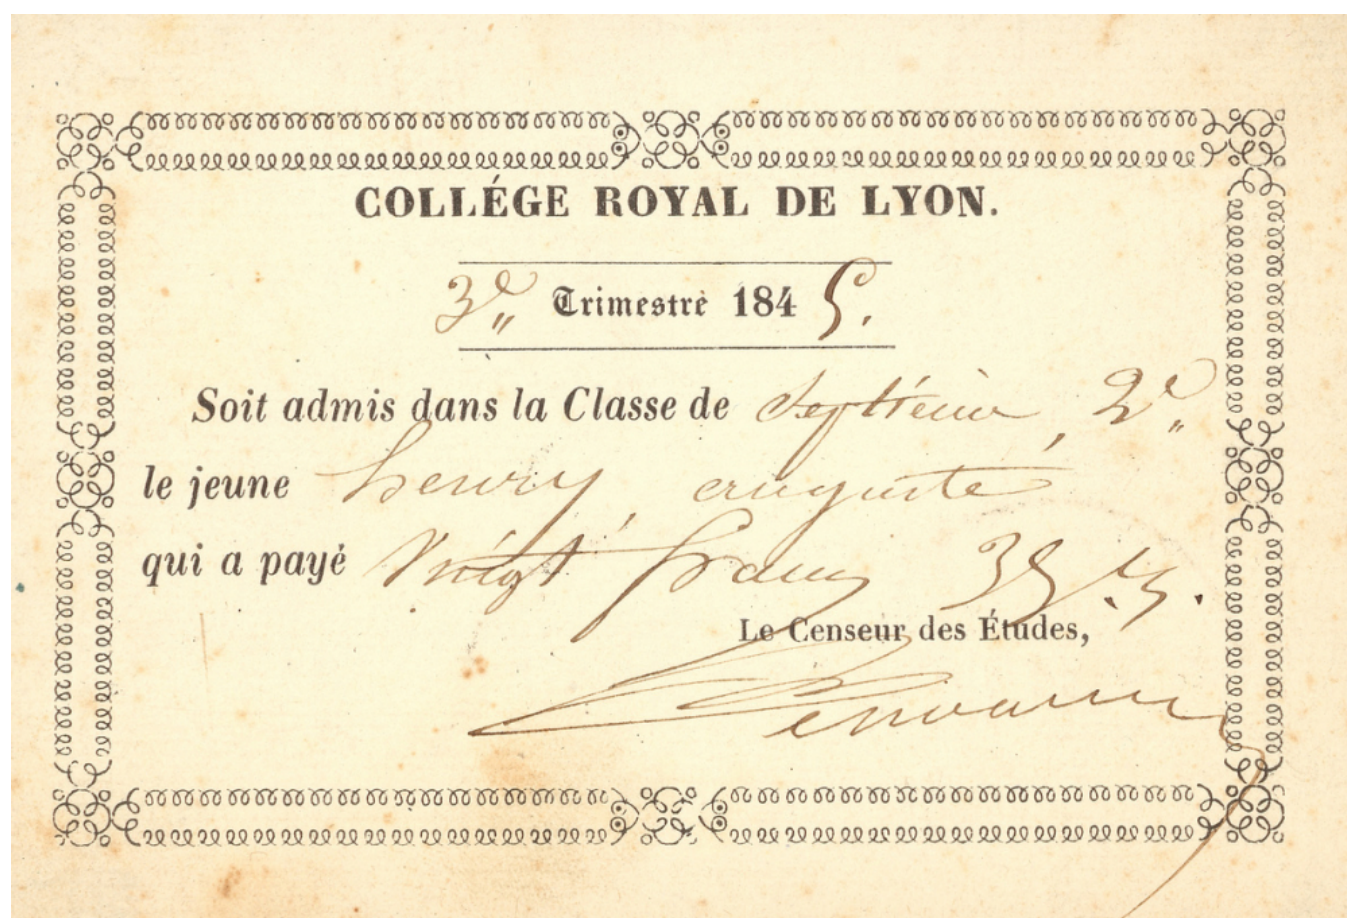 COLLÉGE ROYAL DE LYON.
3e Trimestre 1845.
Soit admis dans la Classe de Septième, 2e
le jeune henry, auguste
qui a payé Vingt francs 35 c.
Le Censeur des Études,